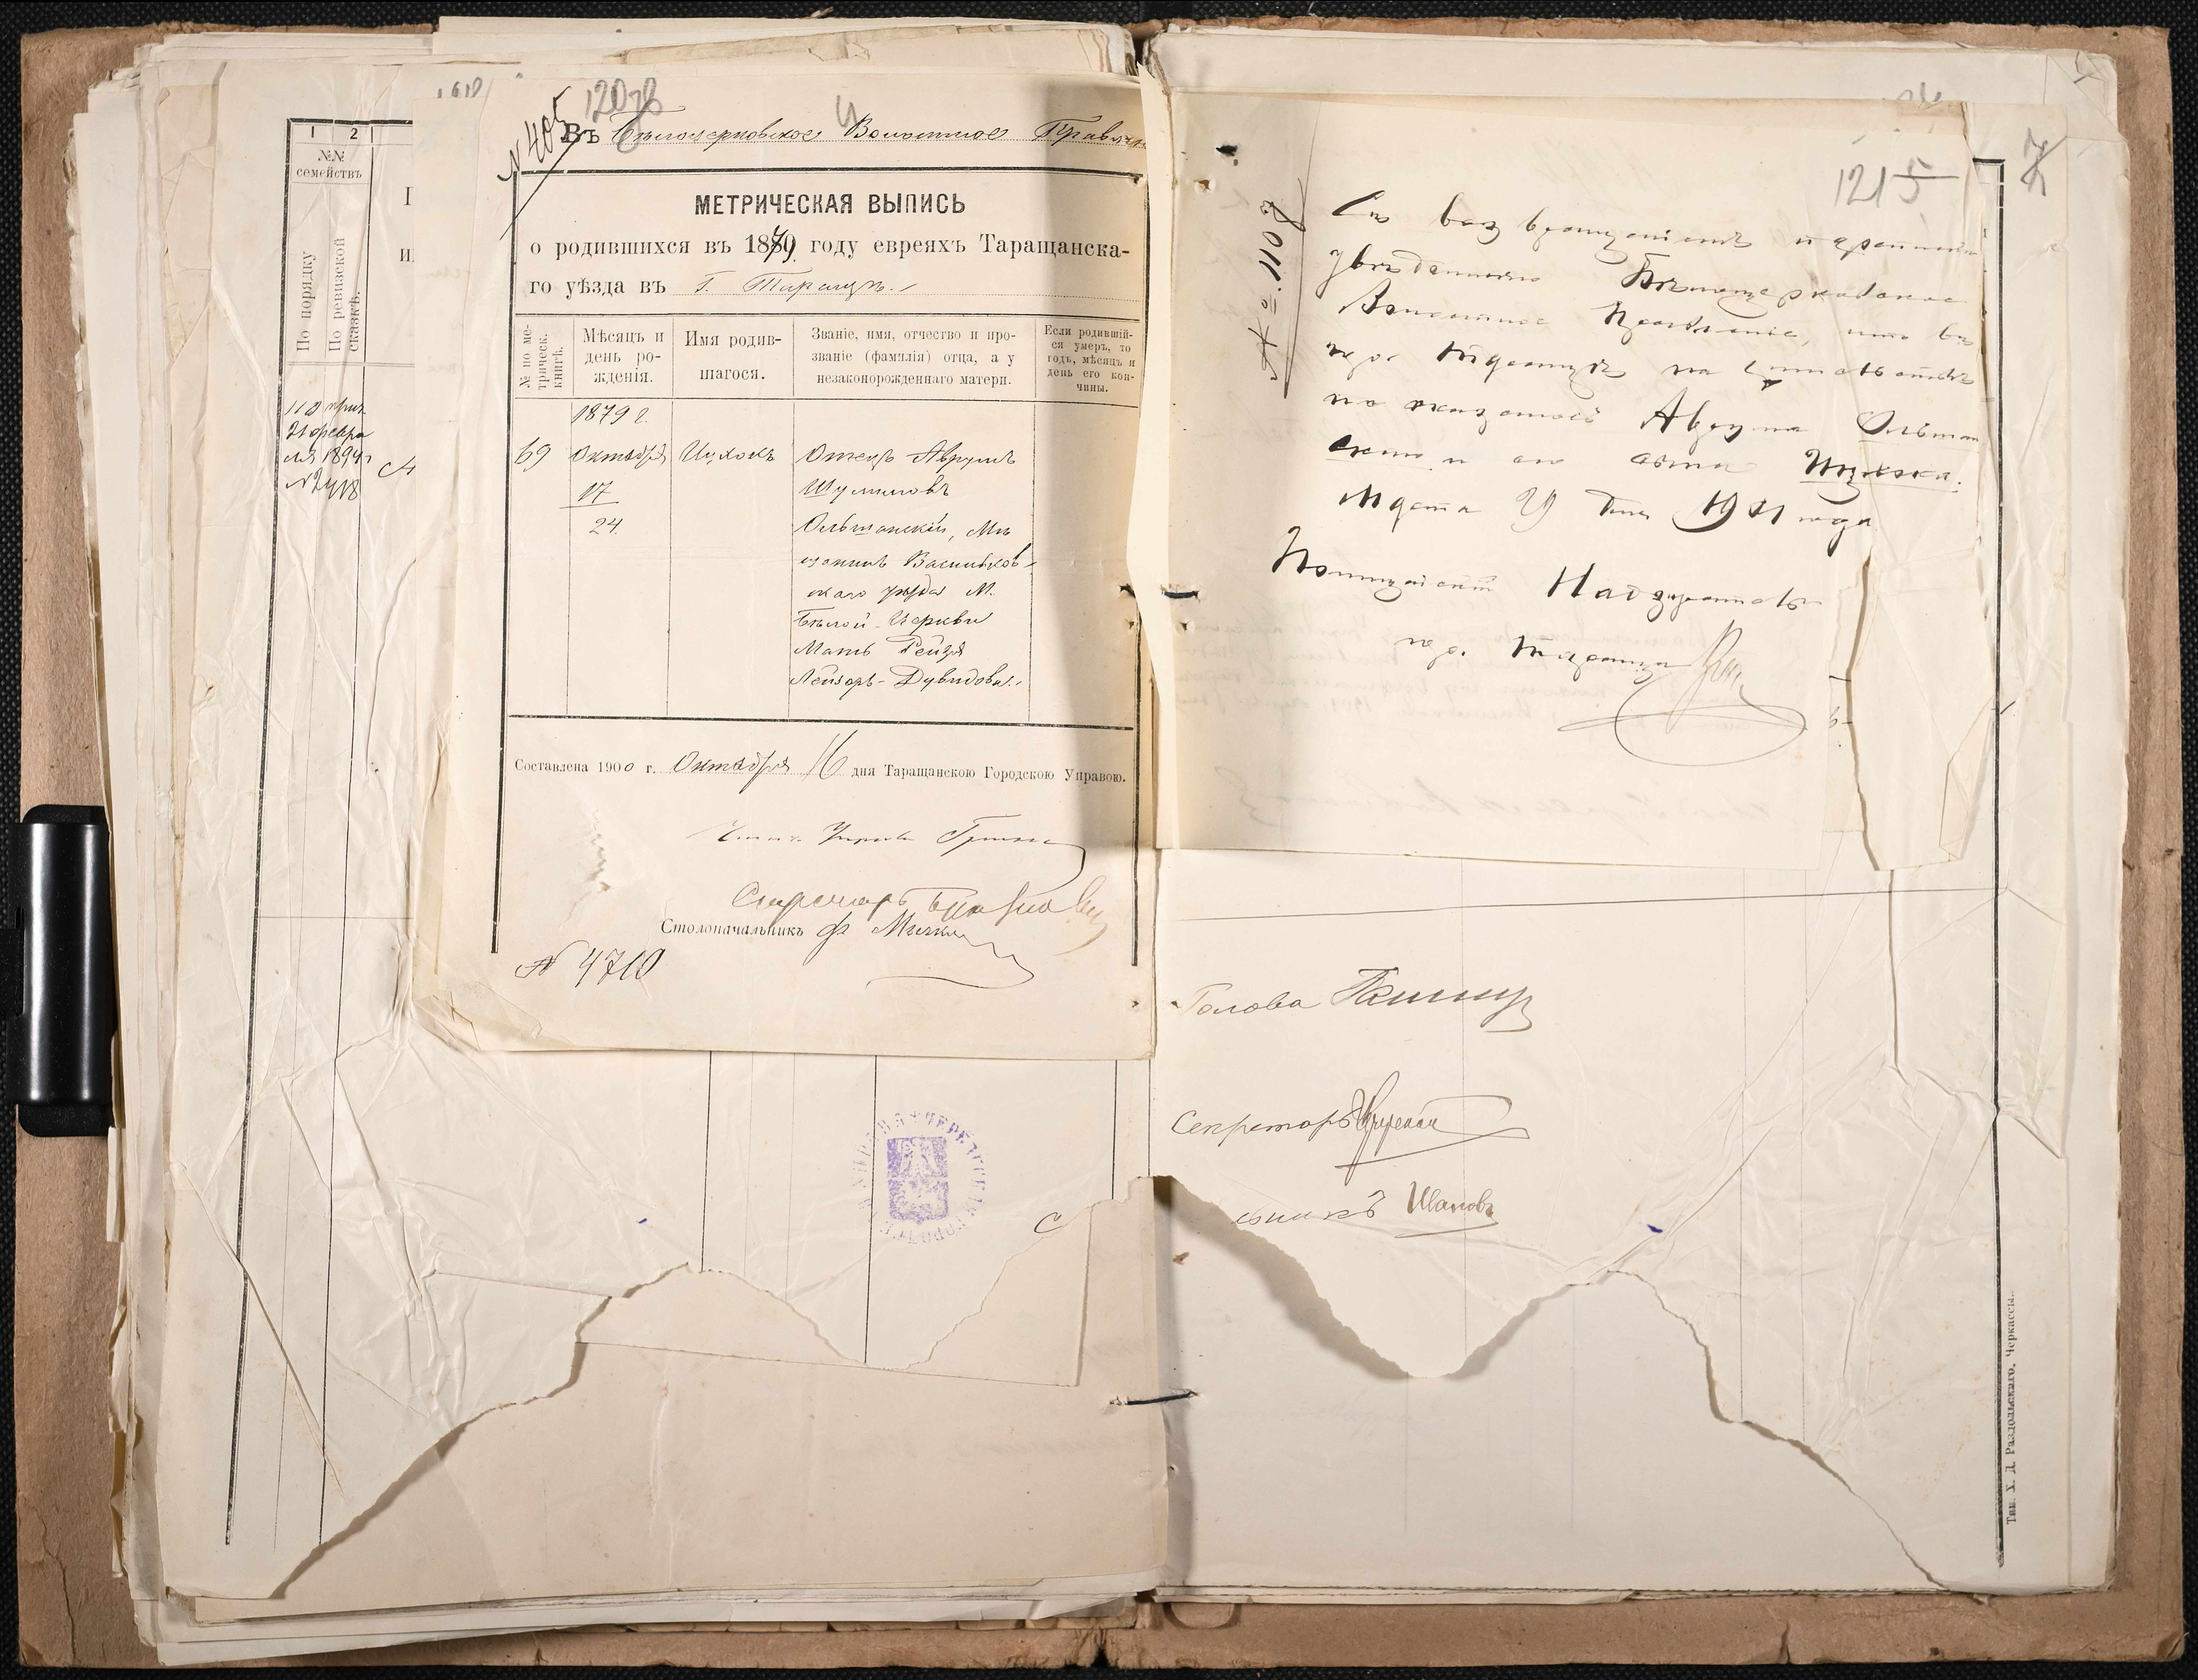 1 2
№№
семействъ
По порядку
По ревизской
сказкѣ.
21 февра
ля 1894 г
№ 2418
№ 405
Въ Бѣлоцерковское Волостное Правлен
МЕТРИЧЕСКАЯ ВЫПИСЬ
о родившихся въ 1879 году евреяхъ Таращанска-
го уѣзда въ г. Таращѣ.
№ по ме-
трическ.
книгѣ.
Мѣсяцъ и
день ро-
жденія.
Имя родив-
шагося.
Званіе, имя, отчество и про-
званіе (фамилія) отца, а у
незаконорожденнаго матери.
Если родившій-
ся умеръ, то
годъ, мѣсяцъ и
день его кон-
чины.
1879 г.
69 Октября Ицхокъ Отецъ Аврумъ
17 Шулимовъ
24. Ольшанскій, Мѣ
щанинъ Васильков-
скаго уѣзда М.
Бѣлой-Церкви
Мать Рейзя
Лейзоръ-Дувидова.
Составлена 1900 г. Октября 16 дня Таращанскою Городскою Управою.
Секретарь
Столоначальникъ
№ 4710
1215
7
№ 1108
Съ возвращеніемъ переписки
увѣдомляю Бѣлоцерковское
Волостное Правленіе, что въ
гор. Таращѣ на жительствѣ
не оказалось Аврума Ольшан
скаго и его сына Ицхока.
Марта 29 дня 1901 года
Полицейскій Надзиратель
гор. Таращи
Голова
Секретарь
ьникъ Ивановъ
Тип. Х. Д. Раздольскаго, Черкассы.